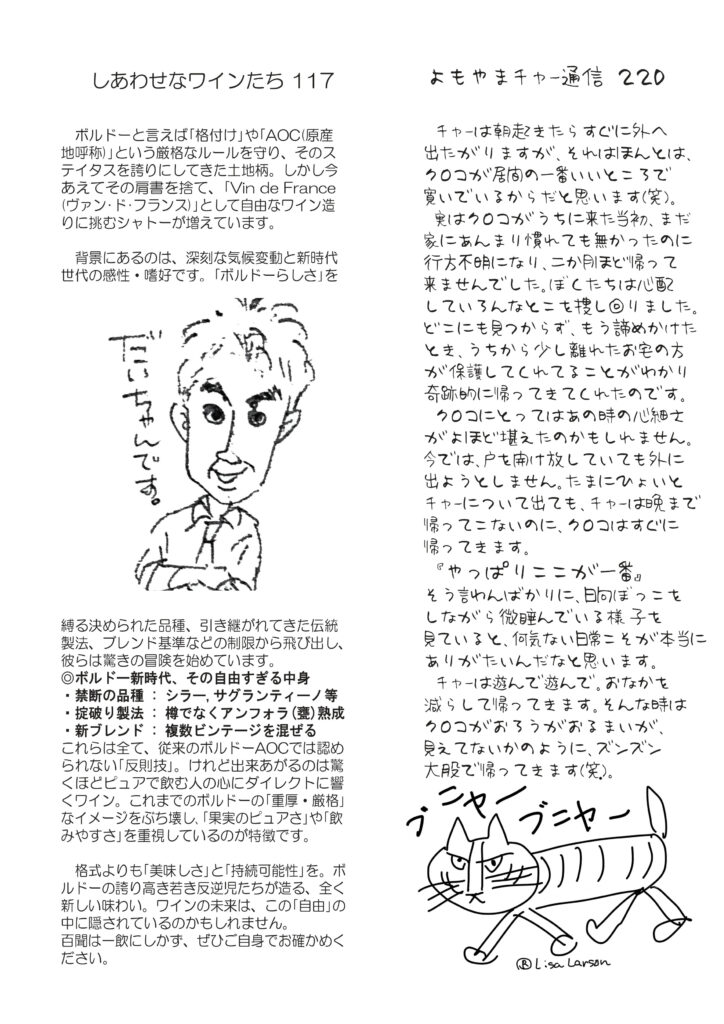 しあわせなワインたち 117
ボルドーと言えば「格付け」や「AOC(原産
地呼称)」という厳格なルールを守り、そのス
テイタスを誇りにしてきた土地柄。しかし今
あえてその肩書を捨て、「Vin de France
(ヴァン・ド・フランス)」として自由なワイン造
りに挑むシャトーが増えています。
背景にあるのは、深刻な気候変動と新時代
世代の感性・嗜好です。「ボルドーらしさ」を
だいちゃんです。
縛る決められた品種、引き継がれてきた伝統
製法、ブレンド基準などの制限から飛び出し、
彼らは驚きの冒険を始めています。
◎ボルドー新時代、その自由すぎる中身
・禁断の品種 : シラー, サグランティーノ等
・掟破り製法 : 樽でなくアンフォラ(甕)熟成
・新ブレンド : 複数ビンテージを混ぜる
これらは全て、従来のボルドーAOCでは認め
られない「反則技」。けれど出来あがるのは驚
くほどピュアで飲む人の心にダイレクトに響
くワイン。これまでのボルドーの「重厚・厳格」
なイメージをぶち壊し、「果実のピュアさ」や「飲
みやすさ」を重視しているのが特徴です。
格式よりも「美味しさ」と「持続可能性」を。ボ
ルドーの誇り高き若き反逆児たちが造る、全く
新しい味わい。ワインの未来は、この「自由」の
中に隠されているのかもしれません。
百聞は一飲にしかず、ぜひご自身でお確かめく
ださい。
よもやまチャー通信 220
チャーは朝起きたらすぐに外へ
出たがりますが、それはほんとは、
クロコが居間の一番いいところで
寛いでいるからだと思います(笑)。
実はクロコがうちに来た当初、まだ
家にあんまり慣れても無かったのに
行方不明になり、二か月ほど帰って
来ませんでした。ぼくたちは心配
していろんなとこを捜し回りました。
どこにも見つからず、もう諦めかけた
とき、うちから少し離れたお宅の方
が保護してくれてることがわかり
奇跡的に帰ってきてくれたのです。
クロコにとってはあの時の心細さ
がよほど堪えたのかもしれません。
今では、戸を開け放していても外に
出ようとしません。たまにひょいと
チャーについて出ても、チャーは晩まで
帰ってこないのに、クロコはすぐに
帰ってきます。
『やっぱりここが一番』
そう言わんばかりに、日向ぼっこを
しながら微睡んでいる様子を
見ていると、何気ない日常こそが本当に
ありがたいんだなと思います。
チャーは遊んで遊んで。おなかを
減らして帰ってきます。そんな時は
クロコがおろうがおるまいが、
見えてないかのように、ズンズン
大股で帰ってきます(笑)。
ブニャー
ブニャー
Ⓡ Lisa Larson